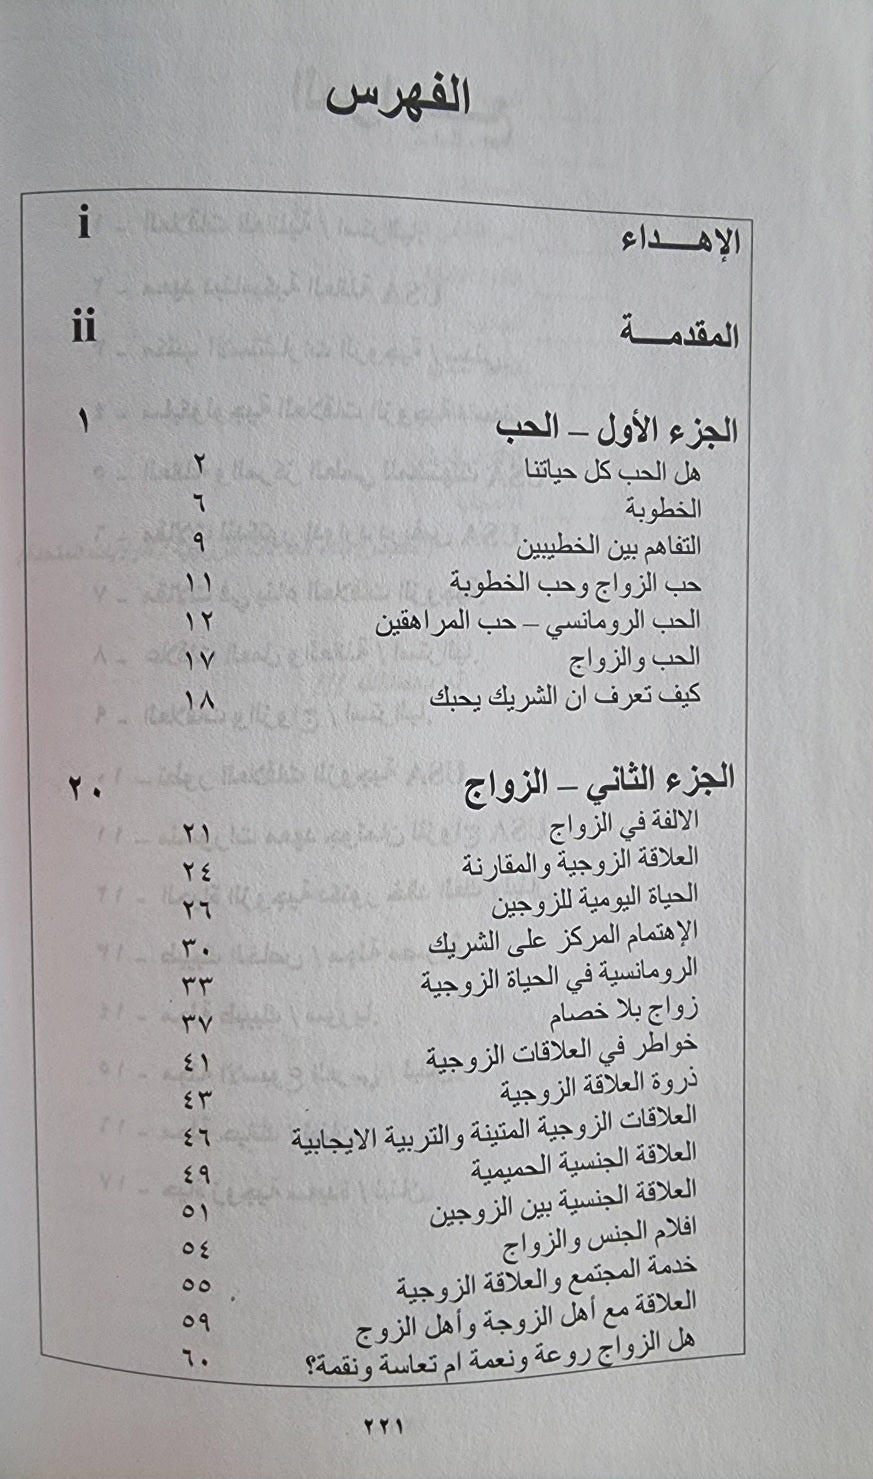 الفهرس
الإهـــداء i
المقدمـــة ii
الجزء الأول – الحب ١
هل الحب كل حياتنا ٢
الخطوبة ٦
التفاهم بين الخطيبين ٩
حب الزواج وحب الخطوبة ١١
الحب الرومانسي – حب المراهقين ١٢
الحب والزواج ١٧
كيف تعرف ان الشريك يحبك ١٨
الجزء الثاني – الزواج ٢٠
الالفة في الزواج ٢١
العلاقة الزوجية والمقارنة ٢٤
الحياة اليومية للزوجين ٢٦
الإهتمام المركز على الشريك ٣٠
الرومانسية في الحياة الزوجية ٣٣
زواج بلا خصام ٣٧
خواطر في العلاقات الزوجية ٤١
ذروة العلاقة الزوجية ٤٣
العلاقات الزوجية المتينة والتربية الايجابية ٤٦
العلاقة الجنسية الحميمية ٤٩
العلاقة الجنسية بين الزوجين ٥١
افلام الجنس والزواج ٥٤
خدمة المجتمع والعلاقة الزوجية ٥٥
العلاقة مع أهل الزوجة وأهل الزوج ٥٩
هل الزواج روعة ونعمة ام تعاسة ونقمة؟ ٦٠
٢٢١